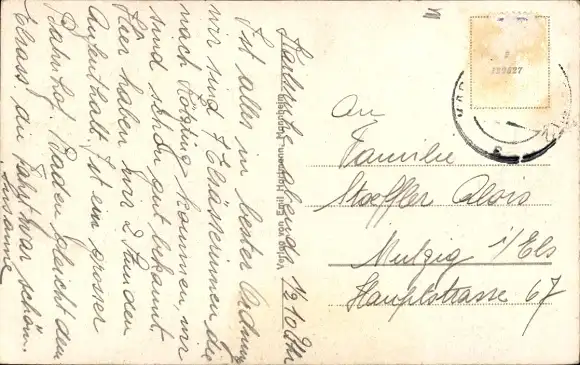 Karlsruhe abends 1/2 10 Uhr
Ist alles in bester Ordnung
wir sind 7 Elsässerinnen die
nach Kötzting kommen, wir
sind schon gut bekannt.
Hier haben wir 2 Stunden
Aufenthalt. Ist ein grosser
Bahnhof. Baden gleicht dem
Elsass. die Fahrt war schön.
Susanne
Verlag von Emil Hartmann, Mannheim
An
Familie
Stoeffler Alois
Mutzig i/Els
Hauptstrasse 67
129627